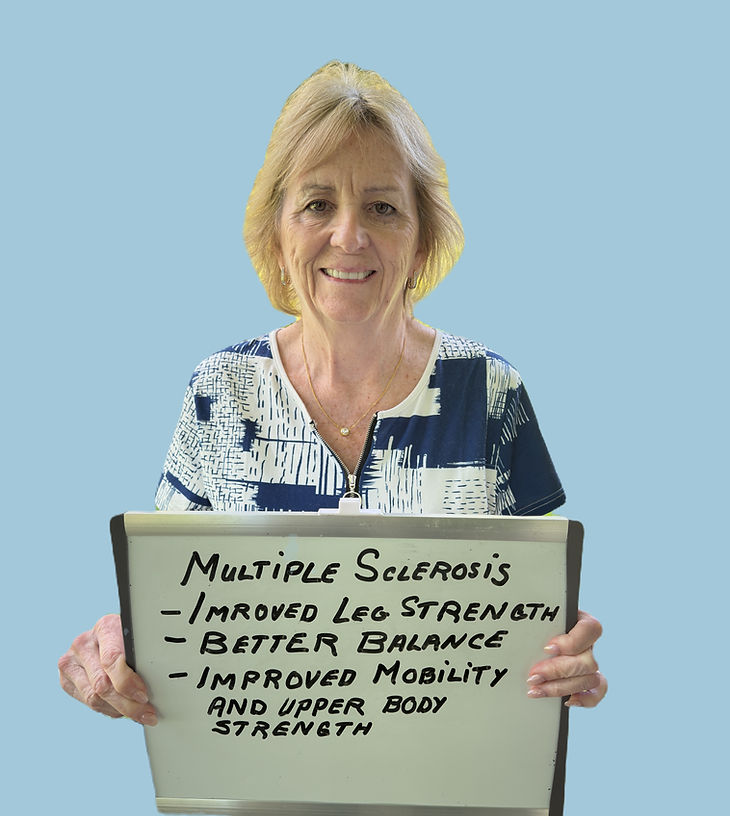 MULTIPLE SCLEROSIS
- IMROVED LEG STRENGTH
- BETTER BALANCE
- IMPROVED MOBILITY
AND UPPER BODY
STRENGTH